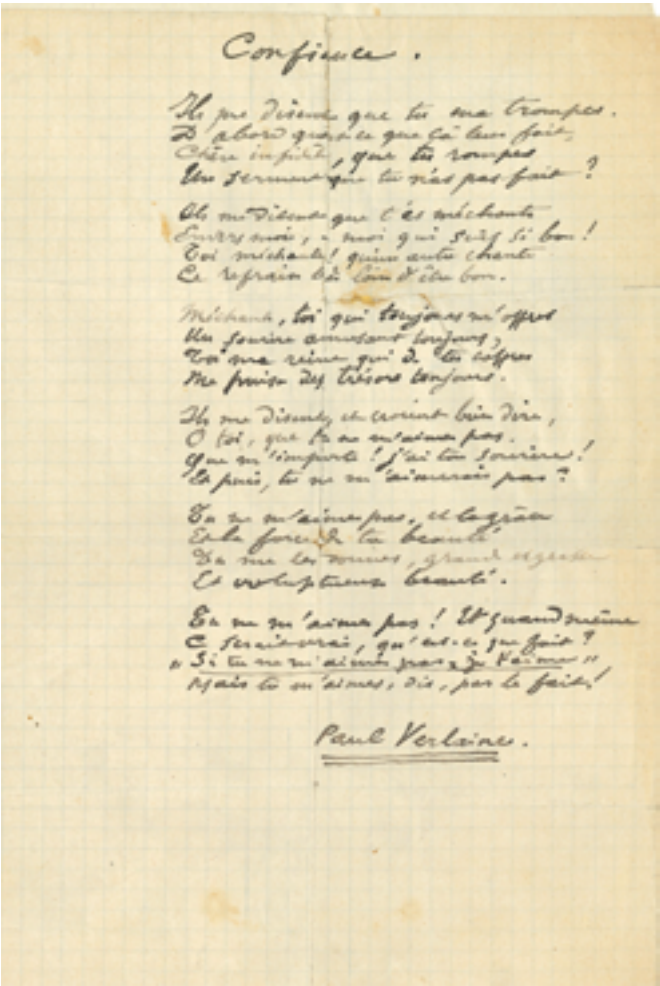 Confiance.
Ils me disent que tu me trompes.
D'abord qu'est-ce que çà leur fait,
Chère infidèle, que tu rompes
Un serment que tu n'as pas fait ?
Ils me disent que t'es méchante
Envers moi, – moi qui suis si bon !
Toi méchante ! qu'un autre chante
Ce refrain très loin d'être bon.
Méchante, toi qui toujours m'offres
Un sourire amusant toujours,
Toi ma reine qui de tes coffres
Me puise des trésors toujours.
Ils me disent, et croient bien dire,
O toi, que tu ne m'aimes pas.
Que m'importe ! j'ai ton sourire !
Et puis, tu ne m'aimerais pas ?
Tu ne m'aimes pas, et la grâce
Et la force de ta beauté
Tu me les donnes, grande et grasse
Et voluptueuse beauté.
Tu ne m'aimes pas ! Et quand même
Ce serait vrai, qu'est-ce que fait ?
"Si tu ne m'aimes pas, je t'aime"
Mais tu m'aimes, dis, par le fait !
Paul Verlaine.